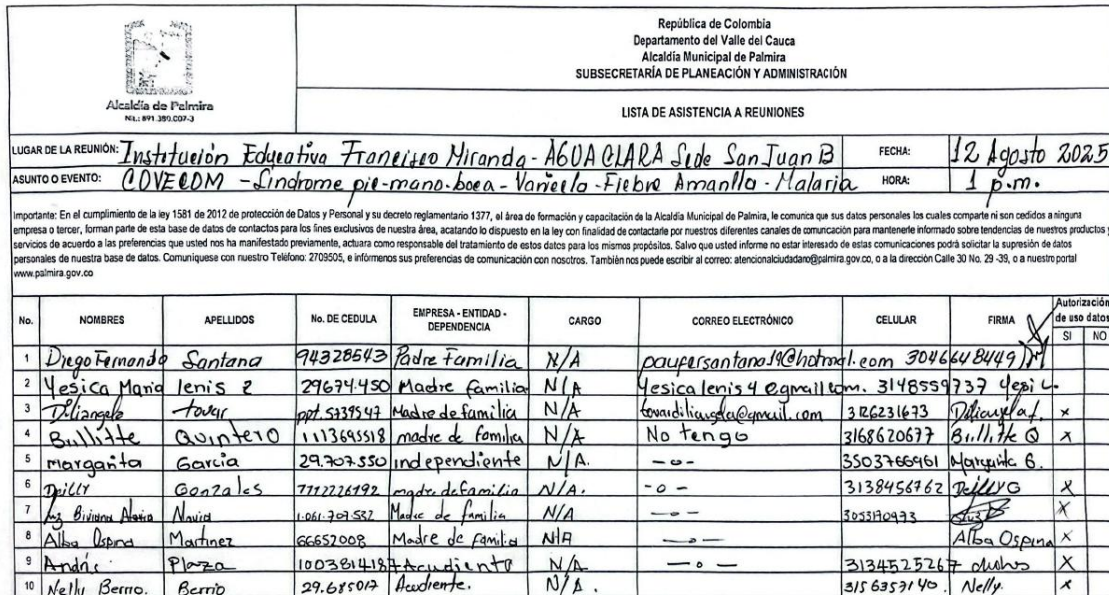 República de Colombia
Departamento del Valle del Cauca
Alcaldía Municipal de Palmira
SUBSECRETARÍA DE PLANEACIÓN Y ADMINISTRACIÓN
Alcaldía de Palmira
Nit.: 891.380.007-3
LISTA DE ASISTENCIA A REUNIONES
LUGAR DE LA REUNIÓN: Institución Educativa Francisco Miranda - AGUA CLARA Sede San Juan B FECHA: 12 Agosto 2025
ASUNTO O EVENTO: COVECOM - Sindrome pie-mano-boca - Varicela - Fiebre Amarilla - Malaria HORA: 1 p.m.
Importante: En el cumplimiento de la ley 1581 de 2012 de protección de Datos y Personal y su decreto reglamentario 1377, el área de formación y capacitación de la Alcaldía Municipal de Palmira, le comunica que sus datos personales los cuales comparte ni son cedidos a ninguna
empresa o tercer, forman parte de esta base de datos de contactos para los fines exclusivos de nuestra área, acatando lo dispuesto en la ley con finalidad de contactarle por nuestros diferentes canales de comunicación para mantenerle informado sobre tendencias de nuestros productos y
servicios de acuerdo a las preferencias que usted nos ha manifestado previamente, actuara como responsable del tratamiento de estos datos para los mismos propósitos. Salvo que usted informe no estar interesado de estas comunicaciones podrá solicitar la supresión de datos
personales de nuestra base de datos. Comuníquese con nuestro Teléfono: 2709505, e infórmenos sus preferencias de comunicación con nosotros. También nos puede escribir al correo: atencionalciudadano@palmira.gov.co, o a la dirección Calle 30 No. 29 -39, o a nuestro portal
www.palmira.gov.co
No. NOMBRES APELLIDOS No. DE CEDULA EMPRESA - ENTIDAD - DEPENDENCIA CARGO CORREO ELECTRÓNICO CELULAR FIRMA Autorización de uso datos SI NO
1 Diego Fernando Santana 94328543 Padre Familia N/A paufersantana19@hotmail.com 3046648449
2 Yesica Maria lenis 2 29674.450 Madre familia N/A Yesicalenis4@gmail.com. 3148559737 Yesi L.
3 tovar ppt.5739547 Madre de familia N/A tovardiliangela@gmail.com 3126231673 x
4 Bullitte Quintero 1113695518 madre de familia N/A No tengo 3168620677 Bullitte Q x
5 margarita Garcia 29.707.550 independiente N/A. -o- 3503766961 Margarita G.
6 Deilly Gonzales 7712226192 madre de familia N/A. -o- 3138456762 Deilly G x
7 Luz Biviana 1.061.707.532 Madre de familia N/A -o- 3053170973 x
8 Alba Ospina Martinez 66652008 Madre de familia N/A -o- Alba Ospina x
9 Andrés Plaza 1003814187 Acudiente N/A -o- 3134525267 x
10 Nelly Berrio. Berrio 29.685017 Acudiente. N/A. 3156357140. Nelly. x